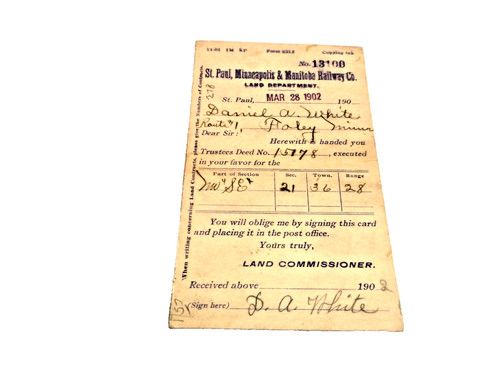 Copying ink.
No. 13100
St. Paul, Minneapolis & Manitoba Railway Co.
LAND DEPARTMENT.
St. Paul, MAR 28 1902 190
Daniel A. White
Route #1, Foley Minn
Dear Sir: Herewith is handed you
Trustees Deed No. 15178, executed
in your favor for the
Part of Section Sec. Town. Range
NW SE 21 36 28
You will oblige me by signing this card
and placing it in the post office.
Yours truly,
LAND COMMISSIONER.
Received above 190 2
(Sign here) D. A. White
When writing concerning Land Contracts, please give the Number of Contract.